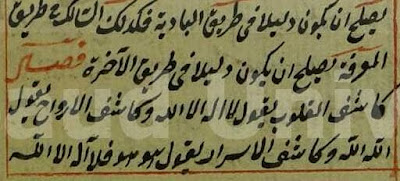 يصلح ان يكون دليلا فى طريق البادية فكذلك السالك فى طريق
المعرفة يصلح ان يكون دليلا فى طريق الآخرة فصل
كاشفى القلوب بقول لا اله الا الله وكاشفى الارواح بقول
الله الله وكاشفى الاسرار بقول هو هو فلا اله الا الله